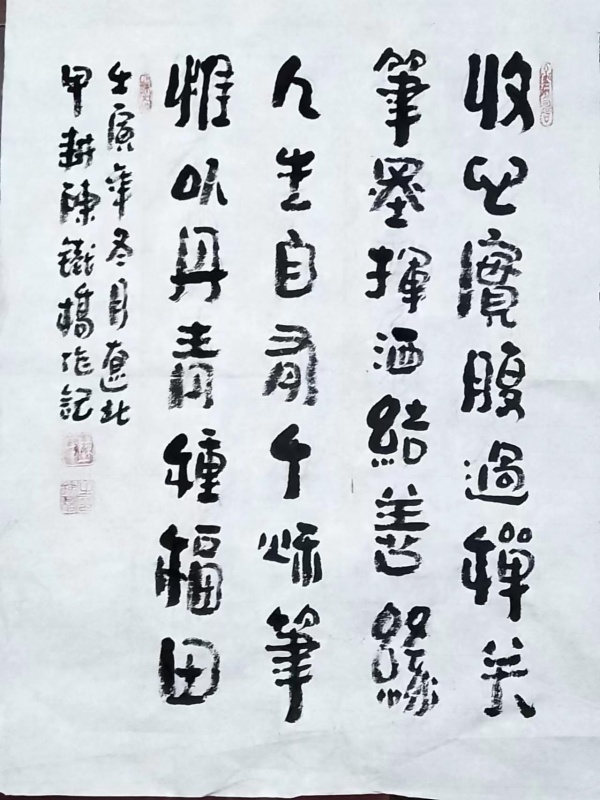 收心實腹過禪关
筆墨揮洒結善緣
人生自有个筆
惟以丹青種福田
壬寅年冬月遼北
甲耕陳鐵橋作記